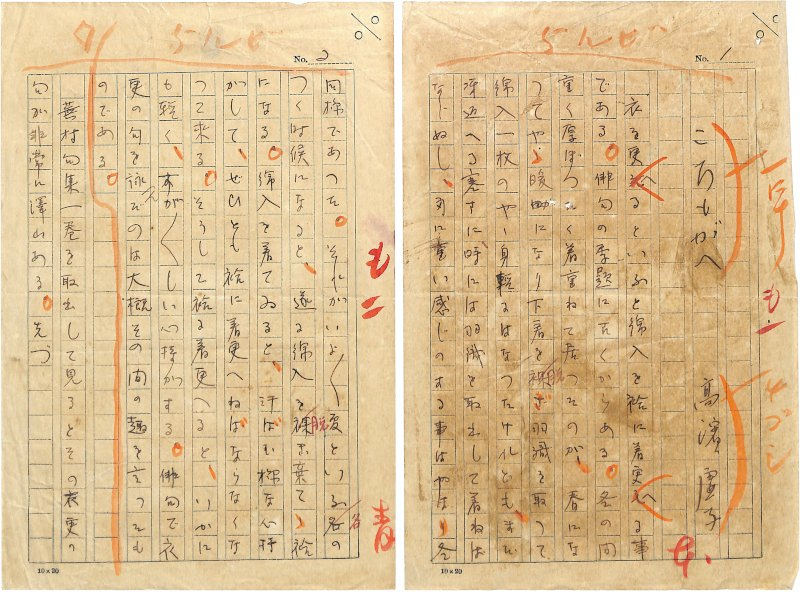 No. 1
ころもがへ
高濱虚子
衣を更へるといふと綿入を袷に着更へる事
である。俳句の季題に古くからある。冬の間
重く厚ぼつたく着重ねて居つたのが、春にな
つてやゝ暖かになり下着を脱ぎ羽織を取つて
綿入一枚のやゝ身軽るはなつたけれども、まだ
冴返へる寒さに時には羽織を取出して着ねば
ならぬし、別に重い感じのする事はやはり冬
10×20
No. 2
同様であつた。それがいよ〳〵夏といふ名の
つく時候になると、遂に綿入を脱ぎ棄てゝ袷
になる。綿入を着てゐると、汗ばむ様な心持
がして、ぜひとも袷に着更へねばならなくな
つて来る。そうして袷に着更へると、いかに
も軽く、すが〳〵しい心持がする。俳句で衣
更の句を詠んだのは大概その間の趣を言つたも
のである。
蕪村句集一巻を取出して見るとその衣更の
句が非常に澤山ある。先づ
10×20